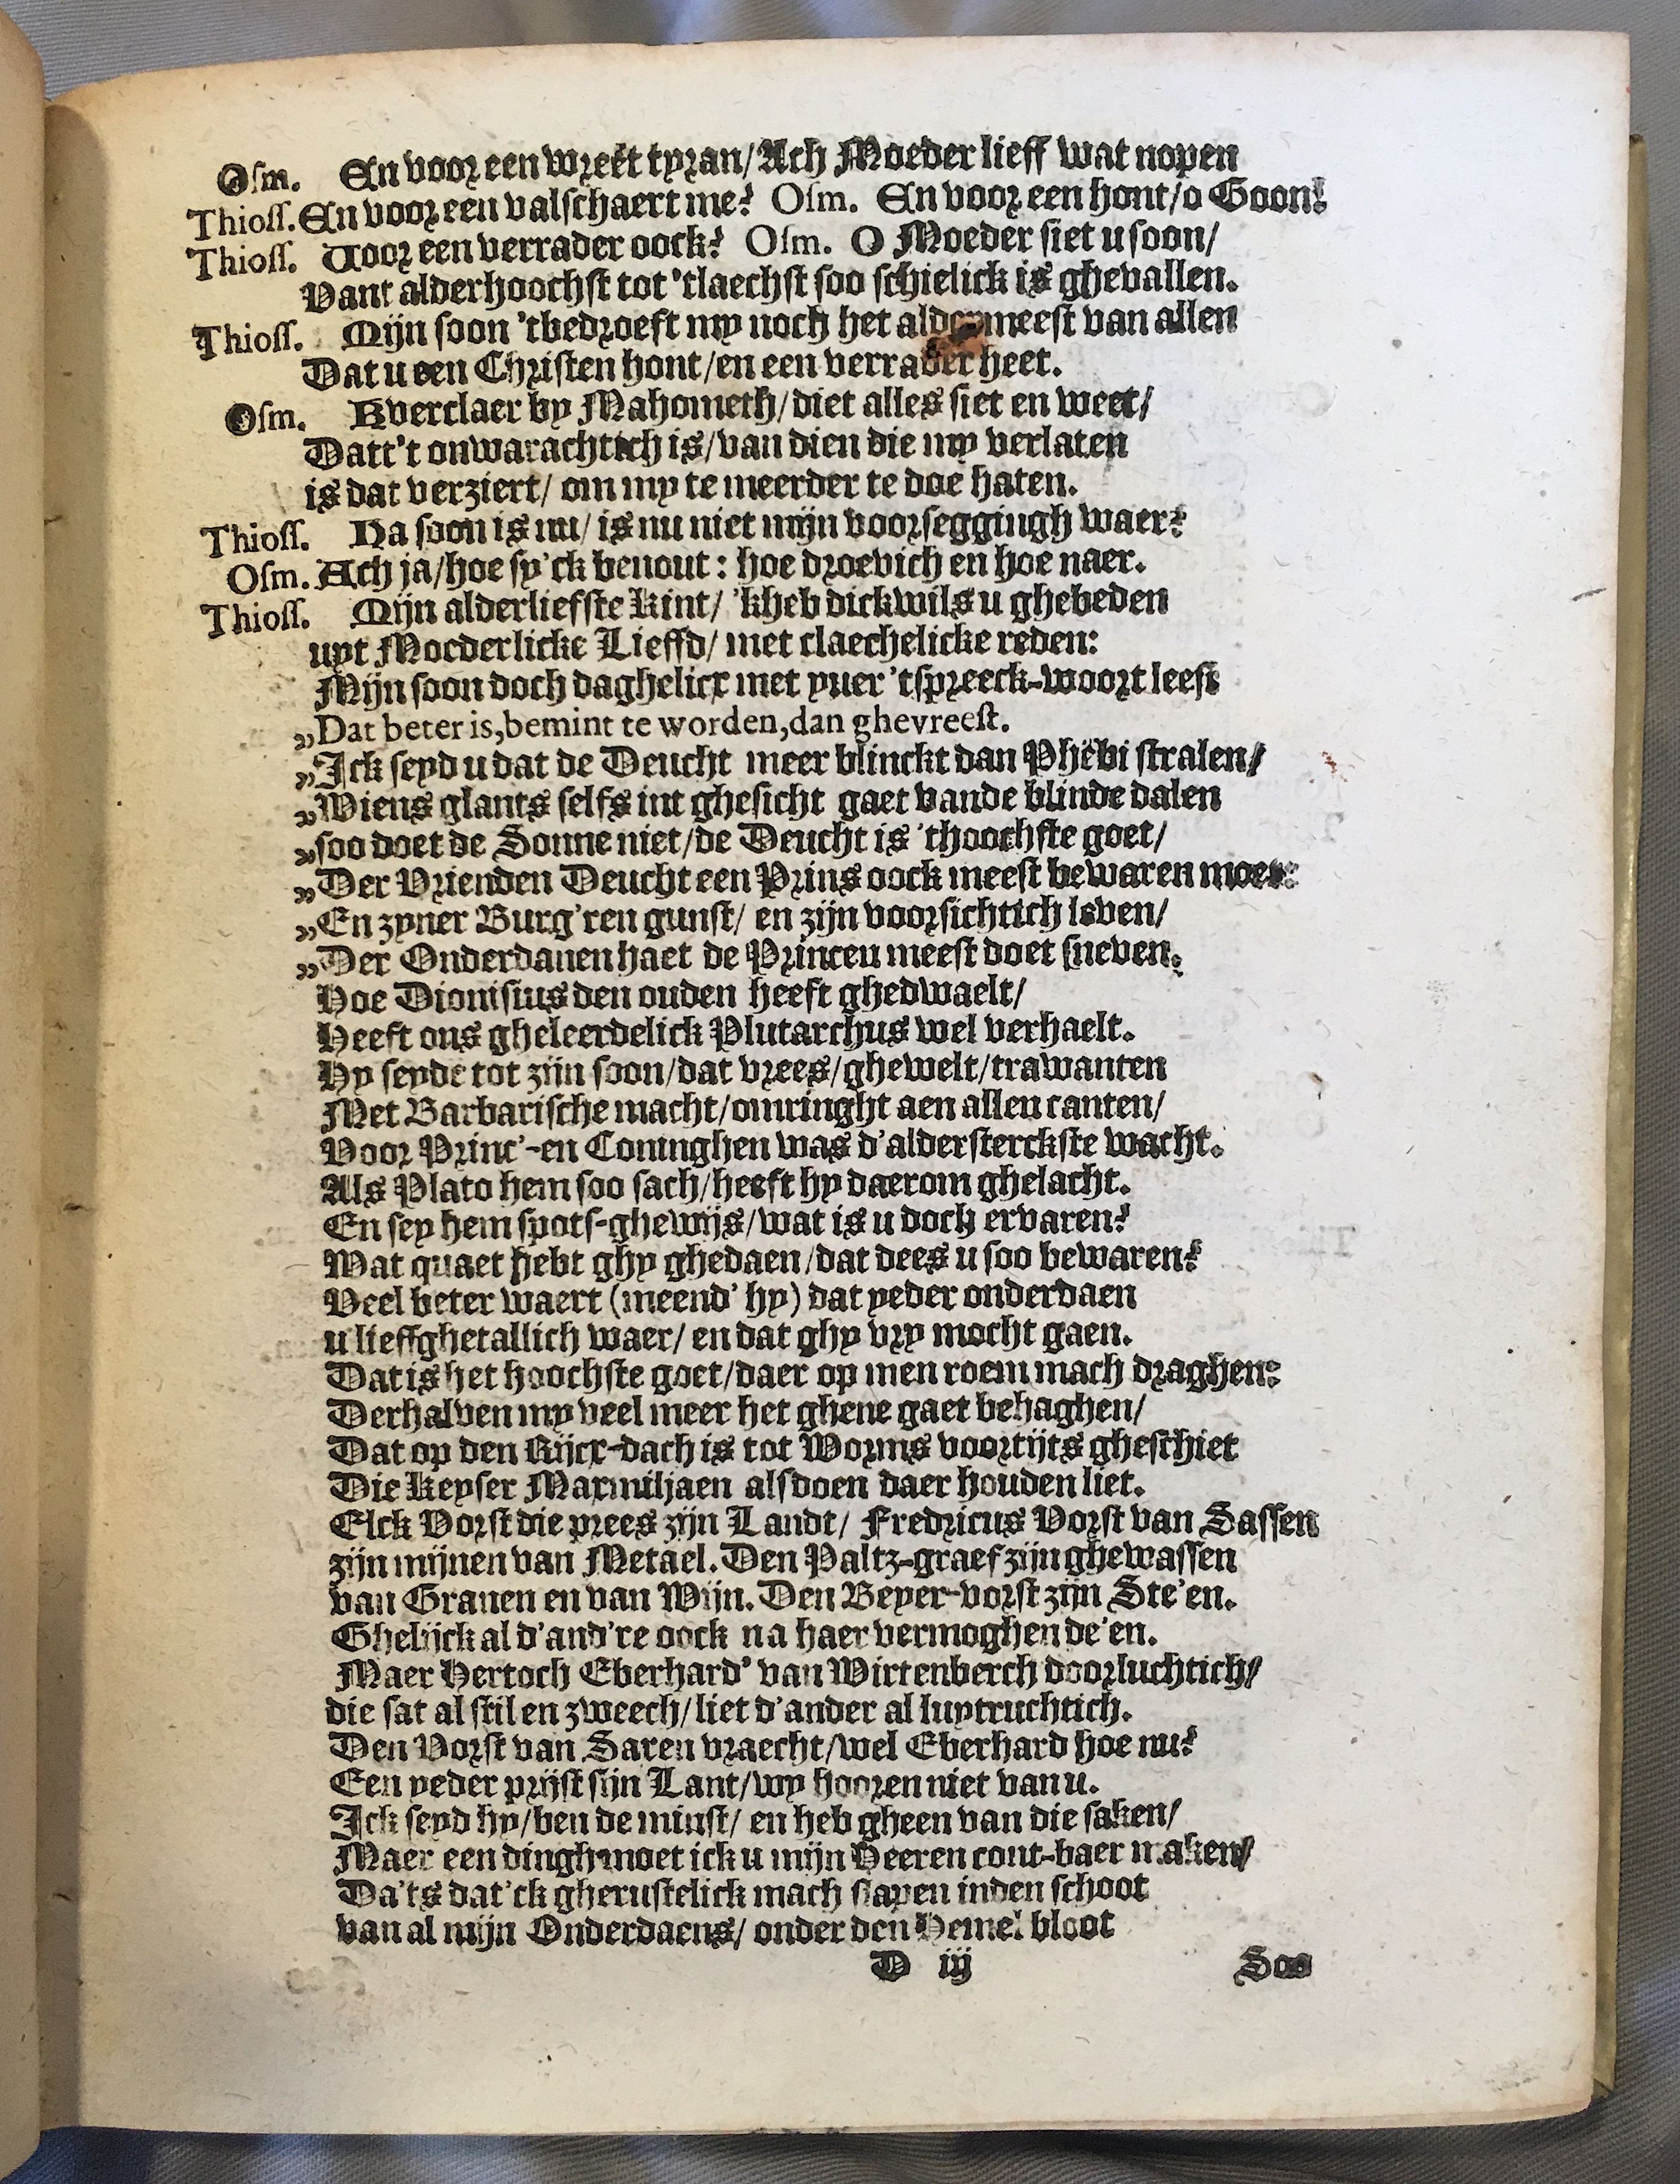 Osm. En voor een wreet tyran/Ach Moeder lieff wat nopen
Thioss. En voor een valschaert me? Osm. En voor een hont/o Goon!
Thioss. Voor een verrader oock? Osm. O Moeder siet u soon/
Vant alderhoochst tot 'tlaechst soo schielick is ghevallen.
Thioss. Mijn soon 'tbedroeft my noch het aldermeest van allen
Dat u een Christen hont/en een verrader heet.
Osm. Kverclaer by Mahometh/diet alles siet en weet/
Datt't onwarachtich is/van dien die my verlaten
is dat verziert/ om my te meerder te doē haten.
Thioss. Ha soon is nu/ is nu niet mijn voorseggingh waer?
Osm. Ach ja/hoe sy'ck benout: hoe droevich en hoe naer.
Thioss. Mijn alderliefste Kint/ 'kheb dickwils u ghebeden
uyt Moederlicke Lieffd/ met claechelicke reden:
Mijn soon doch daghelicx met yver 'tspreeck-woort leest
„Dat beter is, bemint te worden, dan ghevreest.
„Ick seyd u dat de Deucht meer blinckt dan Phebi stralen/
„Wiens glants selfs int ghesicht gaet vande blinde dalen
„soo doet de Sonne niet/de Deucht is 'thoochste goet/
„Der Vrienden Deucht een Prins oock meest bewaren moet:
„En zyner Burg'ren gunst/ en zijn voorsichtich leven/
„Der Onderdanen haet de Princen meest doet sneven.
Hoe Dionisius den ouden heeft ghedwaelt/
Heeft ons gheleerdelick Plutarchus wel verhaelt.
Hy seyde tot zijn soon/dat vrees/ghewelt/trawanten
Met Barbarische macht/omringht aen allen canten/
Voor Princ'-en Coninghen was d'aldersterckste wacht.
Als Plato hem soo sach/heeft hy daerom ghelacht.
En sey hem spots-ghewijs/wat is u doch ervaren?
Wat quaet hebt ghy ghedaen/dat dees u soo bewaren?
Veel beter waert (meend' hy) dat yeder onderdaen
u lieffghetallich waer/ en dat ghy vry mocht gaen.
Dat is het hoochste goet/daer op men roem mach draghen:
Derhalven my veel meer het ghene gaet behaghen/
Dat op den Rijcx-dach is tot Worms voortijts gheschiet
Die Keyser Maxmiljaen alsdoen daer houden liet.
Elck Vorst die prees zijn Landt/ Fredricus Vorst van Sassen
zijn mijnen van Metael. Den Paltz-graef zijn ghewassen
van Granen en van Wijn. Den Beyer-vorst zijn Ste'en.
Ghelijck al d'and're oock na haer vermoghen de'en.
Maer Hertoch Eberhard' van Wirtenberch doorluchtich/
die sat al stil en zweech/liet d'ander al luytruchtich.
Den Vorst van Saxen vraecht/wel Eberhard hoe nu?
Een yeder prijst sijn Lant/wy hooren niet van u.
Ick seyd hy/ben de minst/ en heb gheen van die saken/
Maer een dingh moet ick u mijn Heeren cont-baer maken/
Da'ts dat'ck gherustelick mach slapen inden schoot
van al mijn Onderdaens/ onder den Hemel bloot
D iij Soo